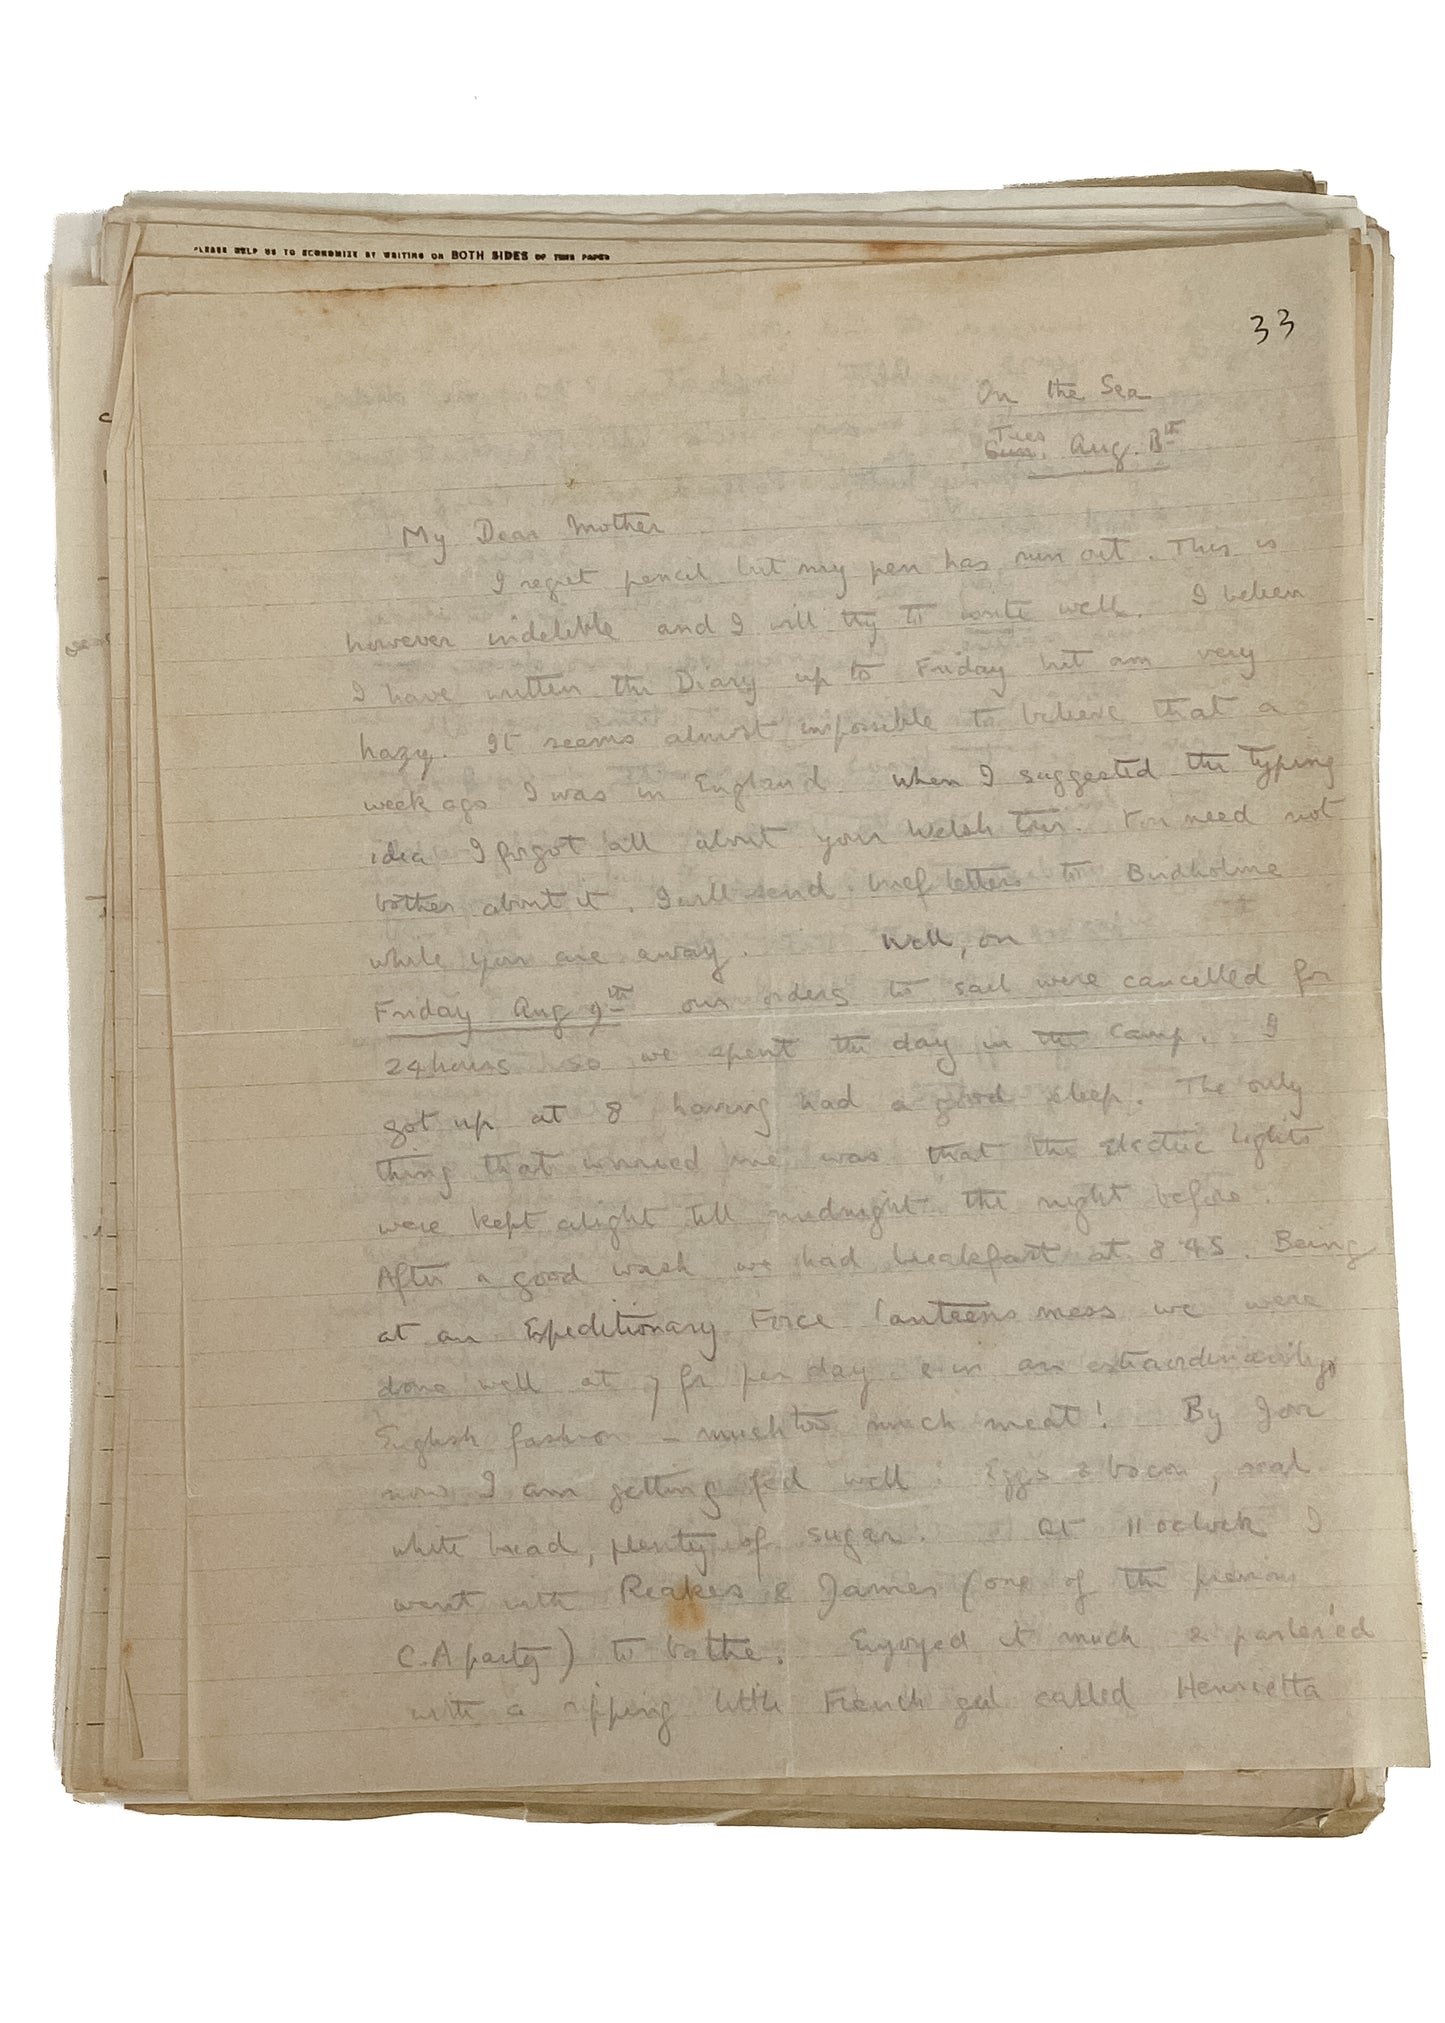 PLEASE HELP US TO ECONOMIZE BY WRITING ON BOTH SIDES OF THIS PAPER
33
On the Sea
Tues
Sun. Aug. 13th
My Dear Mother
I regret pencil but my pen has run out. This is
however indelible and I will try to write well. I believe
I have written the Diary up to Friday but am very
hazy. It seems almost impossible to believe that a
week ago I was in England. When I suggested the typing
idea I forgot all about your Welsh trip. You need not
bother about it. I will send brief letters to Birdholme
while you are away. Well, on
Friday Aug 9th our orders to sail were cancelled for
24 hours so we spent the day in the Camp. I
got up at 8 having had a good sleep. The only
thing that worried me was that the electric lights
were kept alight till midnight the night before.
After a good wash we had breakfast at 8.45. Being
at an Expeditionary Force Canteens mess we were
done well at 7 fr per day & in an extraordinarily
English fashion - much too much meat! By Jove
now I am getting fed well: Eggs & bacon, real
white bread, plenty of sugar. At 11 oclock I
went with Reakes & James (one of the previous
C.A party) to bathe. Enjoyed it much & parler'ed
with a ripping little French girl called Henrietta